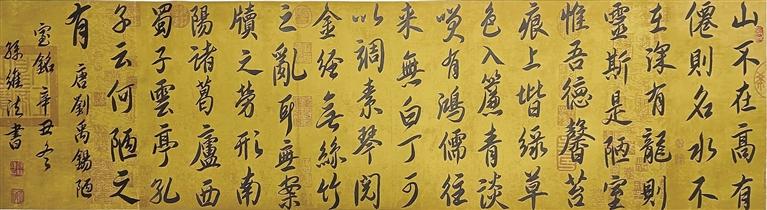 山不在高有
僊則名水不
在深有龍則
靈斯是陋室
惟吾德馨苔
痕上堦綠草
色入簾青淡
咲有鴻儒往
来無白丁可
以調素琴閱
金經無絲竹
之亂耳無案
牘之勞形南
陽諸葛廬西
蜀子雲亭孔
子云何陋之
有
唐劉禹錫陋
室銘辛丑冬
孫維法書